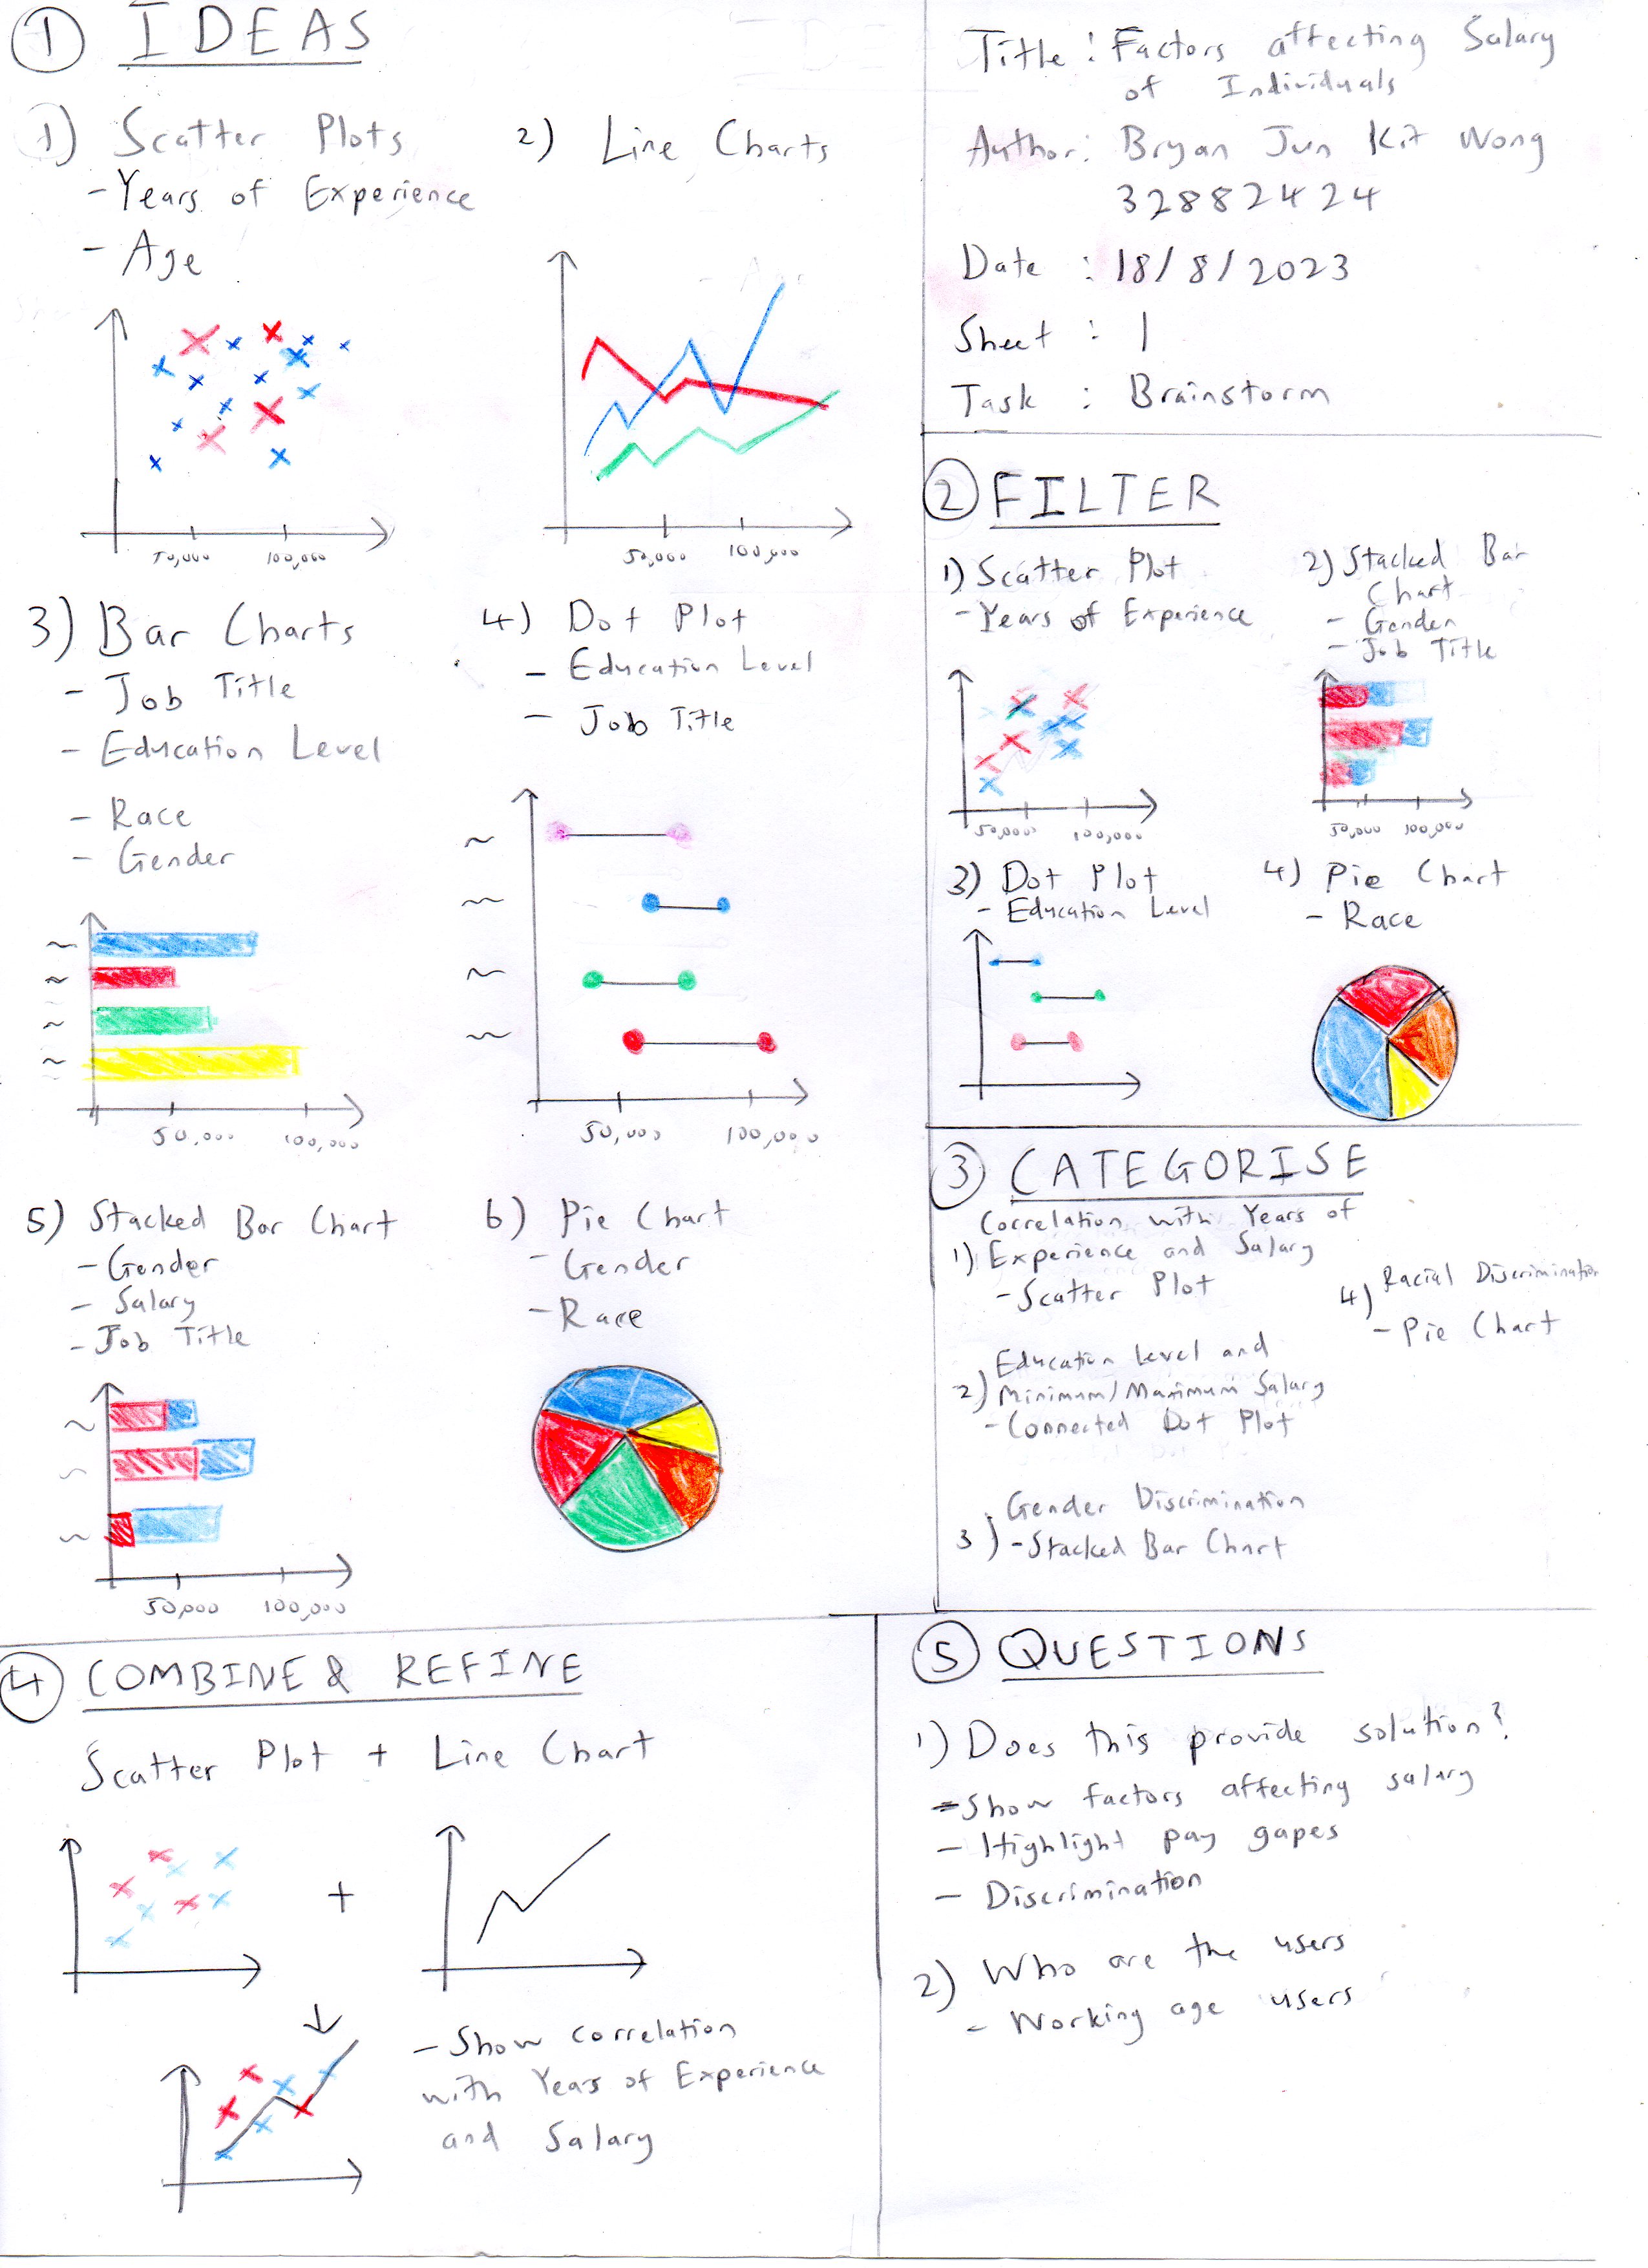 ① IDEAS
1) Scatter Plots
- Years of Experience
- Age
50,000 100,000
2) Line Charts
50,000 100,000
3) Bar Charts
- Job Title
- Education Level
- Race
- Gender
50,000 100,000
4) Dot Plot
- Education Level
- Job Title
50,000 100,000
5) Stacked Bar Chart
- Gender
- Salary
- Job Title
50,000 100,000
6) Pie Chart
- Gender
- Race
Title : Factors affecting Salary
of Individuals
Author: Bryan Jun Kit Wong
32882424
Date : 18/8/2023
Sheet : 1
Task : Brainstorm
② FILTER
1) Scatter Plot
- Years of Experience
50,000 100,000
2) Stacked Bar
Chart
- Gender
- Job Title
50,000 100,000
3) Dot Plot
- Education Level
4) Pie Chart
- Race
③ CATEGORISE
Correlation with Years of
1) Experience and Salary
- Scatter Plot
Education Level and
2) Minimum/Maximum Salary
- Connected Dot Plot
Gender Discrimination
3) - Stacked Bar Chart
4) Racial Discrimination
- Pie Chart
④ COMBINE & REFINE
Scatter Plot + Line Chart
+
- Show correlation
with Years of Experience
and Salary
⑤ QUESTIONS
1) Does this provide solution?
- Show factors affecting salary
- Highlight pay gapes
- Discrimination
2) Who are the users
- Working age users